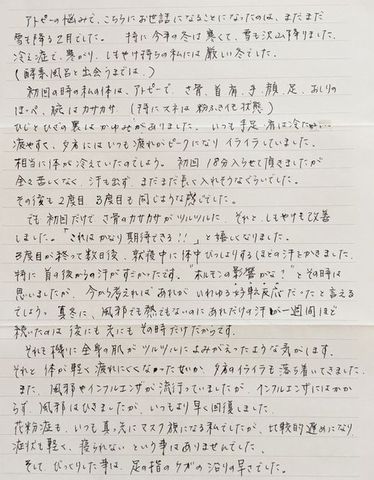 アトピーの悩みで、こちらにお世話になることになったのは、まだまだ
雪も降る2月でした。 特に今年の冬は寒くて、雪も沢山降りました。
冷え症で、寒がり、しもやけ持ちの私には厳しい冬でした。
(酵素風呂と出会うまでは。)
初回の時の私の体は、アトピーで、さ骨、首、肩、手、顔、足、おしりの
ほっぺ、腕はカサカサ (特にスネは粉ふきイモ状態)
ひじとひざの裏はかゆみがありました。いつも手足、肩は冷たい
疲れやすく、夕方にはいつも疲れがピークになりイライラしていました。
相当に体が冷えていたのでしょう。 初回 18分入らせて頂きましたが
全く苦しくなく、汗も出ず、まだまだ長く入れそうなぐらいでした。
その後も2度目 3度目も同じような感じでした。
でも初回だけで、さ骨のカサカサがツルツルに、それと、しもやけも改善
しました。「これはかなり期待できる!!」と嬉しくなりました。
3度目が終って数日後、就寝中に体中びっしょりするほどの汗をかきました。
特に首の後からの汗がすごかったです。"ホルモンの影響かな?"とその時は
思いましたが、今から考えればあれが いわゆる好転反応だったと言える
でしょう。真冬に、風邪でも熱でもないのにあれだけの汗が一週間ほど
続いたのは後にも先にもその時だけだからです。
それを機に全身の肌がツルツルによみがえったような気がします。
それと体が軽く疲れにくくなったせいか、夕方のイライラも落ち着いてきました。
また、風邪やインフルエンザが流行っていましたが、インフルエンザにはかか
らず、風邪はひきましたが、いつもより早く回復しました。
花粉症も、いつも真っ先にマスク族になる私でしたが、比較的遅めになり
症状も軽く、寝られないという事はありませんでした。
そして、びっくりした事は、足の指のケガの治りの早さでした。